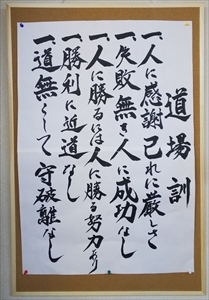 道場訓
一、人に感謝己れに厳しさ
一、失敗無き人に成功なし
一、人に勝るには人に勝る努力あり
一、勝利に近道なし
一、道無くして守破離なし